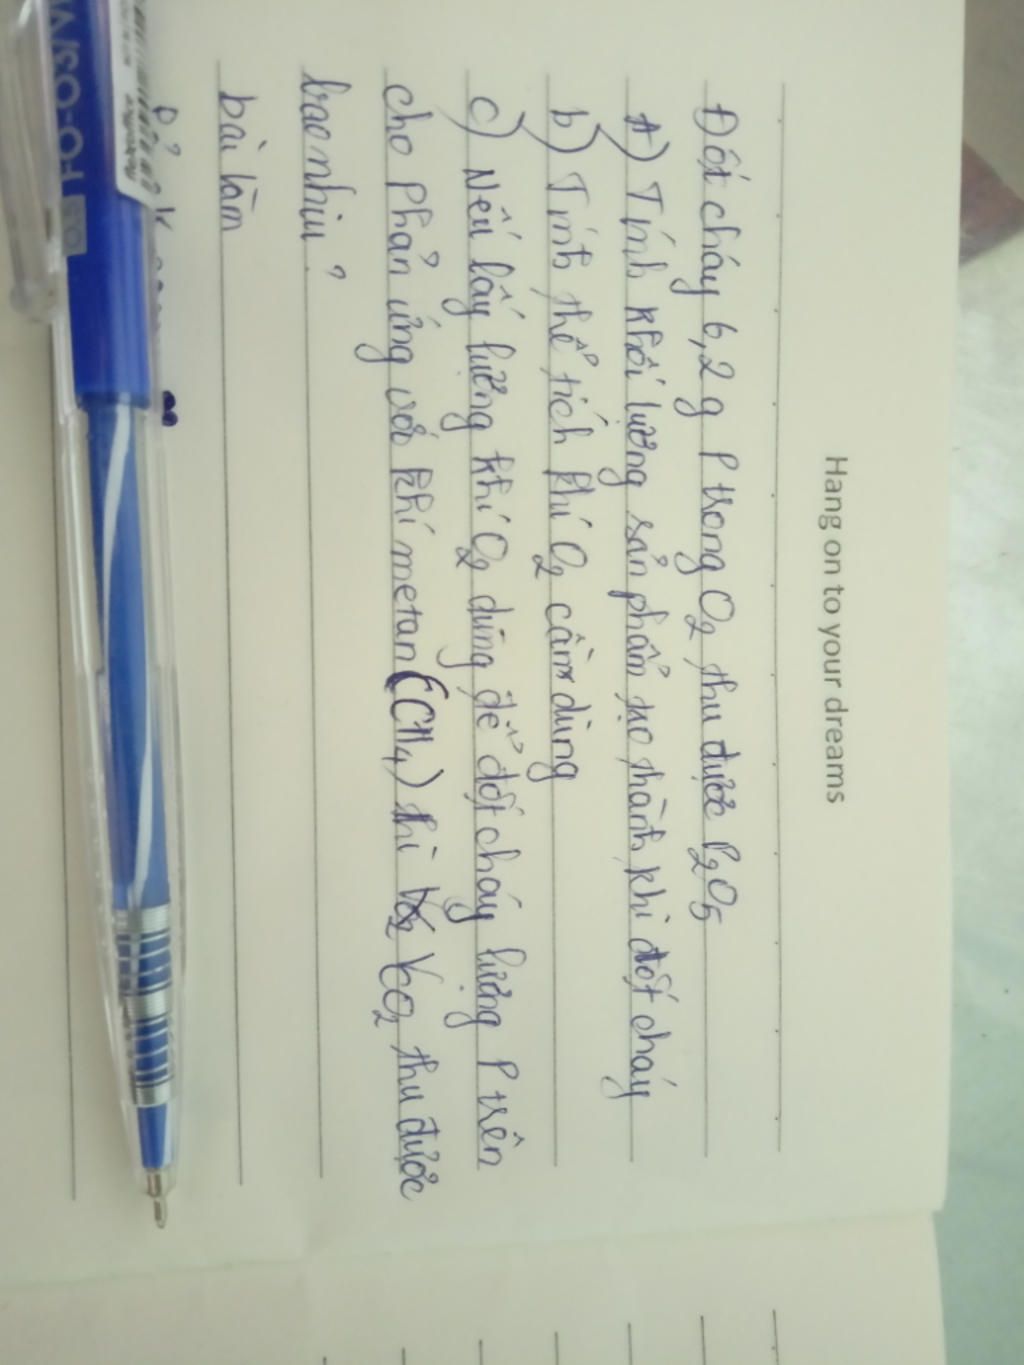 Hang on to your dreams
Đốt cháy 6,2 g P trong O2 thu được P2O5
A) Tính khối lượng sản phẩm tạo thành khi đốt cháy
b) Tính thể tích khí O2 cần dùng
c) Nếu lấy lượng khí O2 dùng để đốt cháy lượng P trên
cho phản ứng với khí metan (CH4) thì VO2 thu được
bao nhiu?
bài làm
0.5 FO-03/V